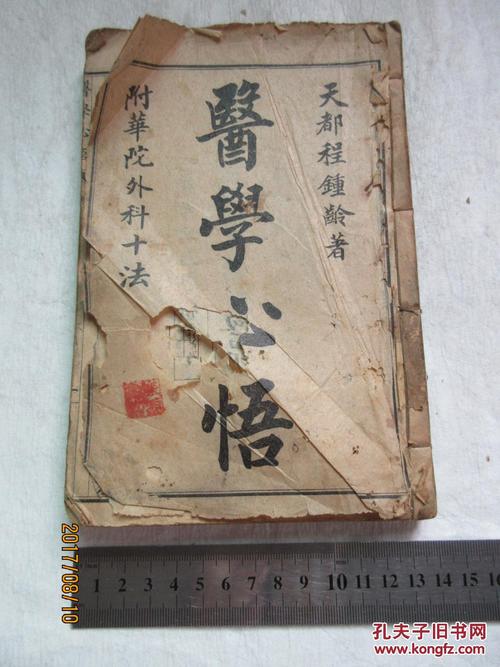 天都程鍾齡著
醫學心悟
附華陀外科十法
1 2 3 4 5 6 7 8 9 10 11 12 13 14 15 16
2017/08/10
孔夫子旧书网
www.kongfz.com